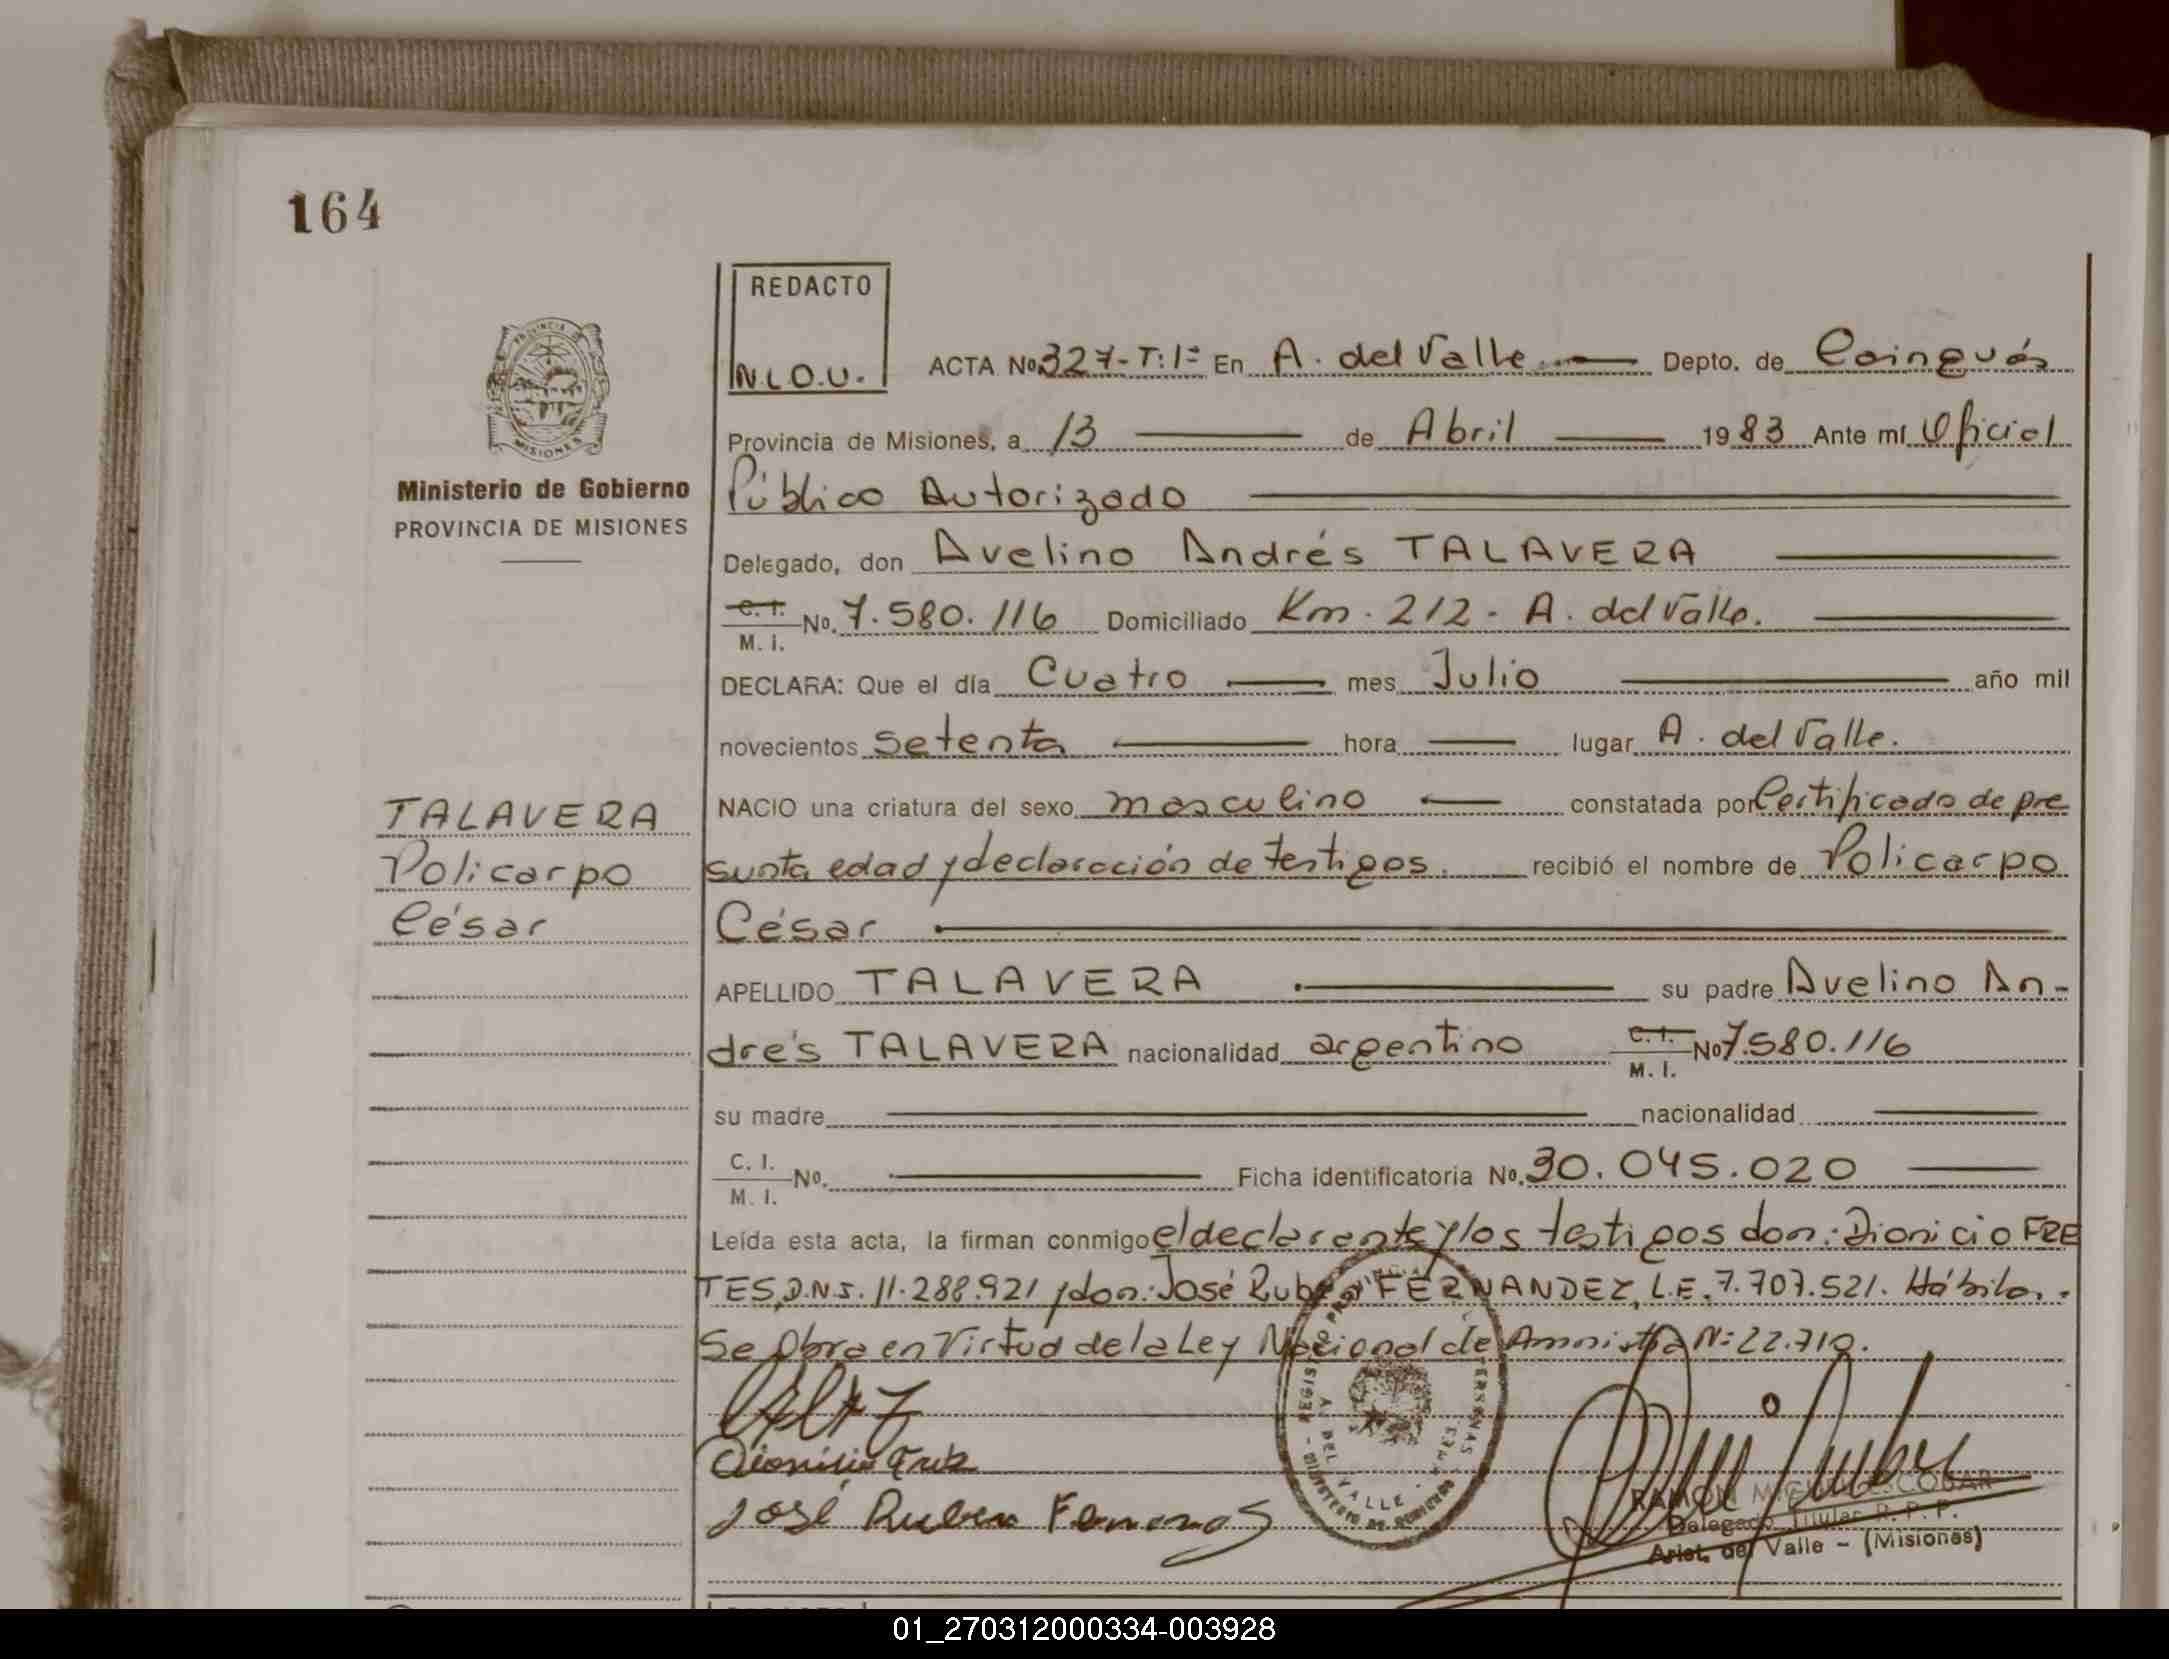 164
REDACTO
N.L.O.U.
PROVINCIA DE
MISIONES
Ministerio de Gobierno
PROVINCIA DE MISIONES
ACTA No. 327-T:1º En A. del Valle Depto. de Cainguás
Provincia de Misiones, a 13 de Abril 1983 Ante mí Oficial
Público Autorizado
Delegado, don Avelino Andrés TALAVERA
C. I. M. I. No. 7.580.116 Domiciliado Km. 212 - A. del Valle.
DECLARA: Que el día Cuatro mes Julio año mil
novecientos setenta hora lugar A. del Valle.
TALAVERA
Policarpo
César
NACIO una criatura del sexo masculino constatada por Certificado de pre
sunta edad y declaración de testigos. recibió el nombre de Policarpo
César
APELLIDO TALAVERA su padre Avelino An-
drés TALAVERA nacionalidad argentino C. I. M. I. No 7.580.116
su madre nacionalidad
C. I. M. I. No. Ficha identificatoria No. 30.045.020
Leída esta acta, la firman conmigo el declarante y los testigos don: Dionicio FRE
TES, D.N.I. 11.288.921 y don: José Ruben FERNANDEZ, L.E. 7.707.521. Hábiles.
Se Obra en Virtud de la Ley Nacional de Amnistía Nº 22.710.
José Ruben
DEL VALLE
RAMON MIGUEL ESCOBAR
Delegado Titular R. P. P.
Arist. del Valle - (Misiones)
01_270312000334-003928